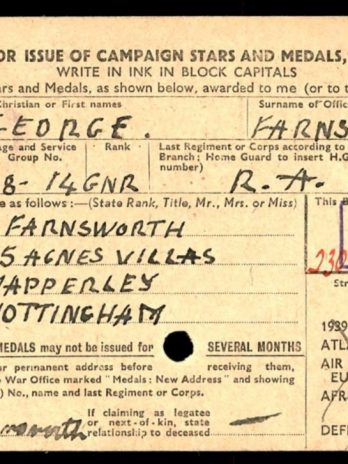 OR ISSUE OF CAMPAIGN STARS AND MEDALS,
WRITE IN INK IN BLOCK CAPITALS
ars and Medals, as shown below, awarded to me (or to t
Christian or First names
Surname of Offic
GEORGE.
FARNS
ge and Service
Group No.
Rank
Last Regiment or Corps according to
Branch; Home Guard to insert H.G
number)
8-14 GNR
R.A.
e as follows :—(State Rank, Title, Mr., Mrs. or Miss)
This B
FARNSWORTH
5 AGNES VILLAS
APPERLEY
OTTINGHAM
230
Str
MEDALS may not be issued for
SEVERAL MONTHS
ur permanent address before
receiving them,
e War Office marked "Medals : New Address" and showing
) No., name and last Regiment or Corps.
1939
ATL
AIR
EU
AFR
DEFE
If claiming as legatee
or next-of-kin, state
relationship to deceased
nsworth